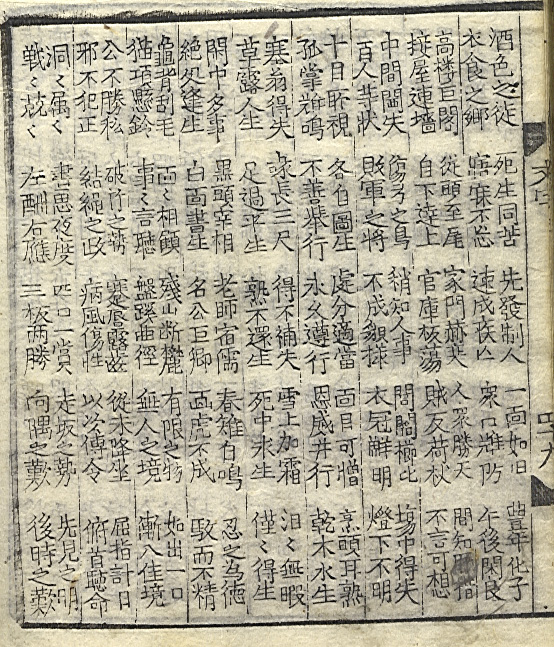 酒色之徒 死生同苦 先發制人 一面如旧 豊年化子
衣食之鄉 寤寐不忘 速成疾亡 衆口難防 午後閑良
高樓巨閣 從頭至尾 家門赫〻 人衆勝天 聞知
接屋連墻 自下達上 官庫板蕩 賊反荷杖 不言可想
中間闖失 傷弓之鳥 稍知人事 閭閻櫛比 場中得失
百人等狀 敗軍之將 不成貌樣 衣冠鮮明 燈下不明
十目所視 各自圖生 處分適當 面目可憎 烹頭耳熟
孤掌難鳴 不善擧行 永久遵行 恩威并行 乾木水生
塞翁得失 喙長三尺 得不補失 雪上加霜 汨〻無暇
草露人生 足過平生 熟不還生 死中求生 僅〻得生
閑中多事 黑頭宰相 老師宿儒 春雉自鳴 忍之為德
絶處逢生 白面書生 名公巨卿 画虎不成 駁而不精
龜背刮毛 面〻相顧 殘山斷麓 有限之物 如出一口
猫項懸鈴 事〻言聽 盤蹊曲徑 無人之境 漸入佳境
公不勝私 破竹之勢 蹇脣露齒 從本降坐 屈指計日
邪不犯正 結繩之政 病風傷性 以次傳令 俯首聽命
洞〻属〻 晝思夜度 口一賞 走坂之勢 先見之明
戰〻兢〻 左酬右應 三板兩勝 向隅之歎 後時之歎